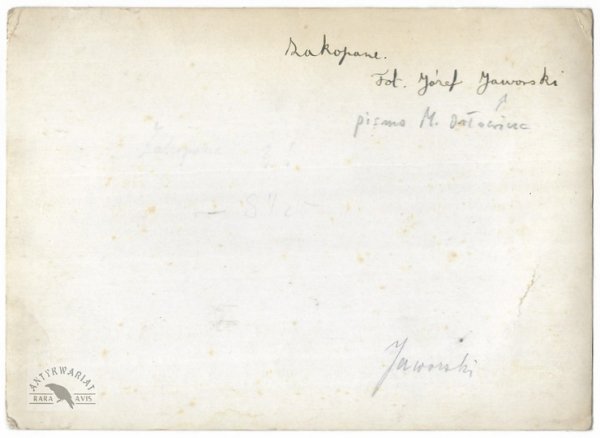 Zakopane.
Fot. Józef Jaworski
pismo M.
zakopane
Jaworski
ANTYKWARIAT
RARA AVIS